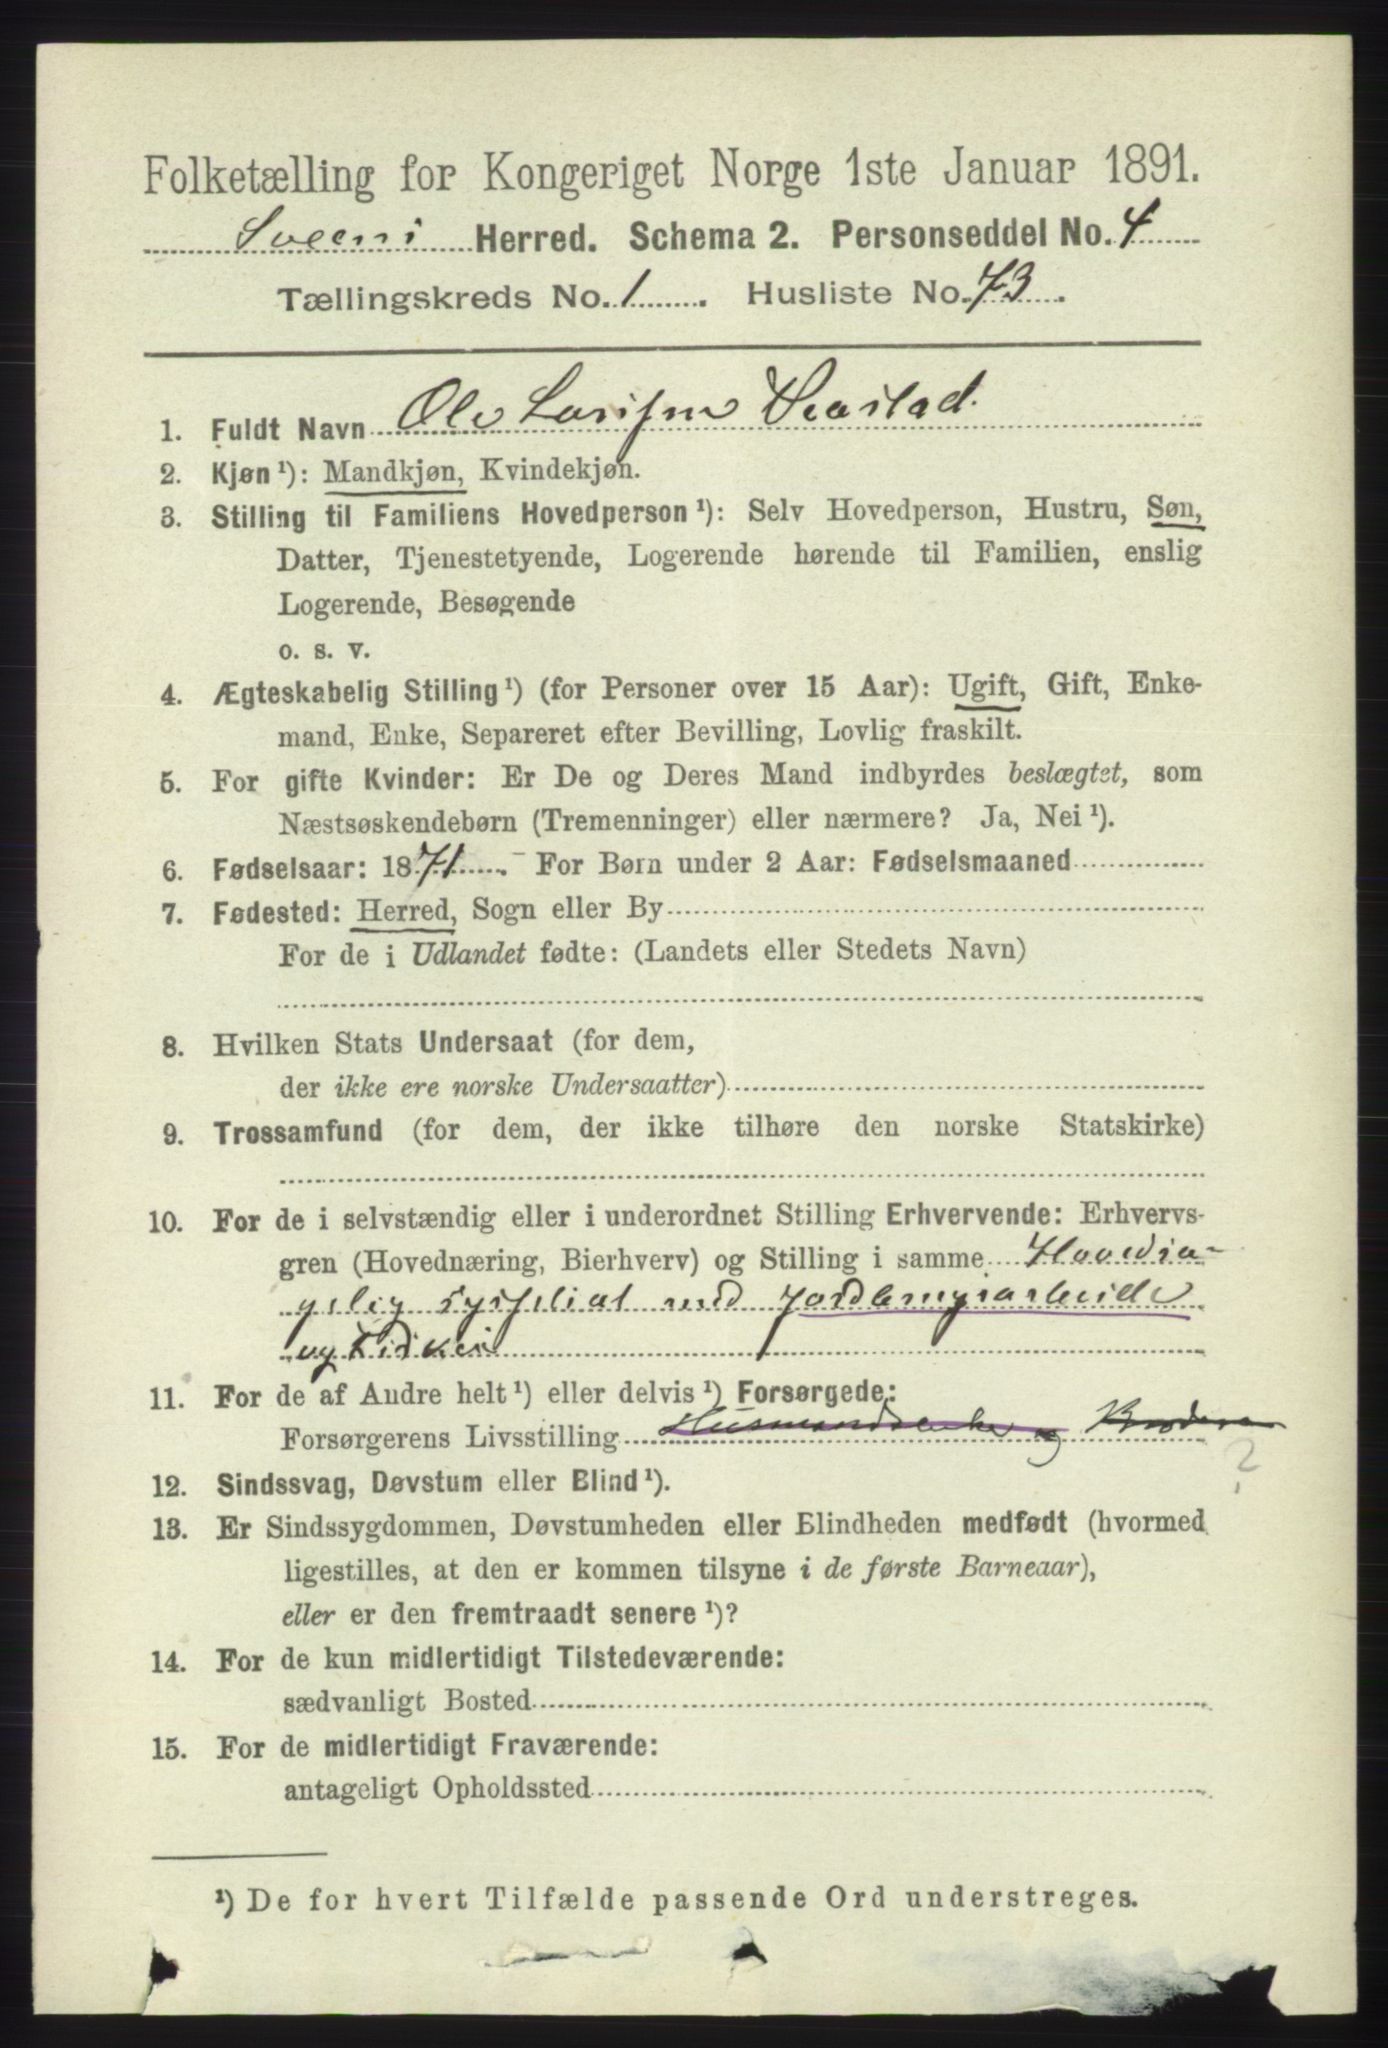 Folketælling for Kongeriget Norge 1ste Januar 1891.
Herred. Schema 2. Personseddel No. 4
Tællingskreds No. 1. Husliste No. 73.
1. Fuldt Navn Ole
2. Kjøn ¹): Mandkjøn, Kvindekjøn.
3. Stilling til Familiens Hovedperson ¹): Selv Hovedperson, Hustru, Søn,
Datter, Tjenestetyende, Logerende hørende til Familien, enslig
Logerende, Besøgende
o. s. v.
4. Ægteskabelig Stilling ¹) (for Personer over 15 Aar): Ugift, Gift, Enke-
mand, Enke, Separeret efter Bevilling, Lovlig fraskilt.
5. For gifte Kvinder: Er De og Deres Mand indbyrdes beslægtet, som
Næstsøskendebørn (Tremenninger) eller nærmere? Ja, Nei ¹).
6. Fødselsaar: 1871. For Børn under 2 Aar: Fødselsmaaned
7. Fødested: Herred, Sogn eller By
For de i Udlandet fødte: (Landets eller Stedets Navn)
8. Hvilken Stats Undersaat (for dem,
der ikke ere norske Undersaatter)
9. Trossamfund (for dem, der ikke tilhøre den norske Statskirke)
10. For de i selvstændig eller i underordnet Stilling Erhvervende: Erhvervs-
gren (Hovednæring, Bierhverv) og Stilling i samme Hovedsa-
gelig sysselsat med
og Fiskeri
11. For de af Andre helt ¹) eller delvis ¹) Forsørgede:
Forsørgerens Livsstilling Husmandsenke og Brødre
?
12. Sindssvag, Døvstum eller Blind ¹).
13. Er Sindssygdommen, Døvstumheden eller Blindheden medfødt (hvormed
ligestilles, at den er kommen tilsyne i de første Barneaar),
eller er den fremtraadt senere ¹)?
14. For de kun midlertidigt Tilstedeværende:
sædvanligt Bosted
15. For de midlertidigt Fraværende:
antageligt Opholdssted
¹) De for hvert Tilfælde passende Ord understreges.